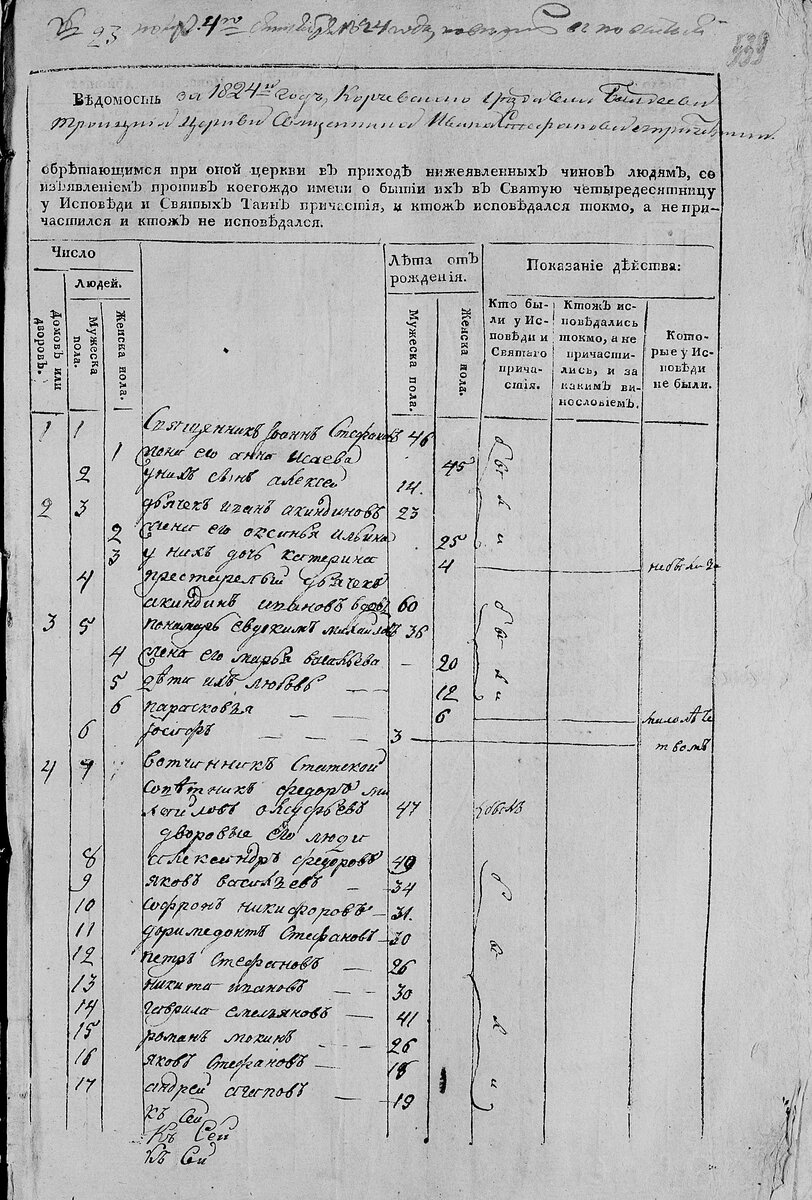 № 23 1824 года,
Вѣдомость за 1824й годъ,
Троицкія церкви Священника Ивана Стефанова
обрѣтающимся при оной церкви въ приходѣ нижеявленныхъ чиновъ людямъ, со
изъявленіемъ противъ коегождо имени о бытіи ихъ въ Святую четыредесятницу
у Исповѣди и Святыхъ Таинъ причастія, и ктожъ исповѣдался токмо, а не при-
частился и ктожъ не исповѣдался.
Число
Людей.
Домовъ или дворовъ.
Мужеска пола.
Женска пола.
Лѣта отъ
рожденія.
Мужеска пола.
Женска пола.
Показаніе дѣйства:
Кто бы-
ли у Ис-
повѣди и
Святаго
прича-
стія.
Ктожъ ис-
повѣдались
токмо, а не
причасти-
лись, и за
какимъ ви-
нословіемъ.
Кото-
рые у Ис-
повѣди
не были.
1 1 Священникъ Іоаннъ Стефановъ 46
1 жена его анна Исаева 45
2 у нихъ сынъ алексей 14
были
2 3 дьячекъ иванъ акиндиновъ 23
2 жена его оксинья ильина 25
3 у нихъ дочь катерина 4 не были за
4 престарелый дьячекъ
акиндинъ ивановъ вдовъ 60
3 5 пономарь евдокимъ михайловъ 36
были
4 жена его марья васильева 20
5 дѣти ихъ любовь 12
6 парасковья 6 малолѣт
6 іосифъ 3 ствомъ
4 7 вотчинникъ Статской
Совѣтникъ федоръ ми
хайловъ 47 былъ
дворовые его люди
8 александръ федоровъ 49
9 яковъ васильевъ 34
10 софронъ никифоровъ 31
11 доримедонтъ Стефановъ 30
12 петръ Стефановъ 26
13 никита ивановъ 30
14 гаврила емельяновъ 41
15 романъ мокинъ 26
16 яковъ Стефановъ 18
17 андрей агаповъ 19
были
къ Сей
Къ Сей
къ Сей